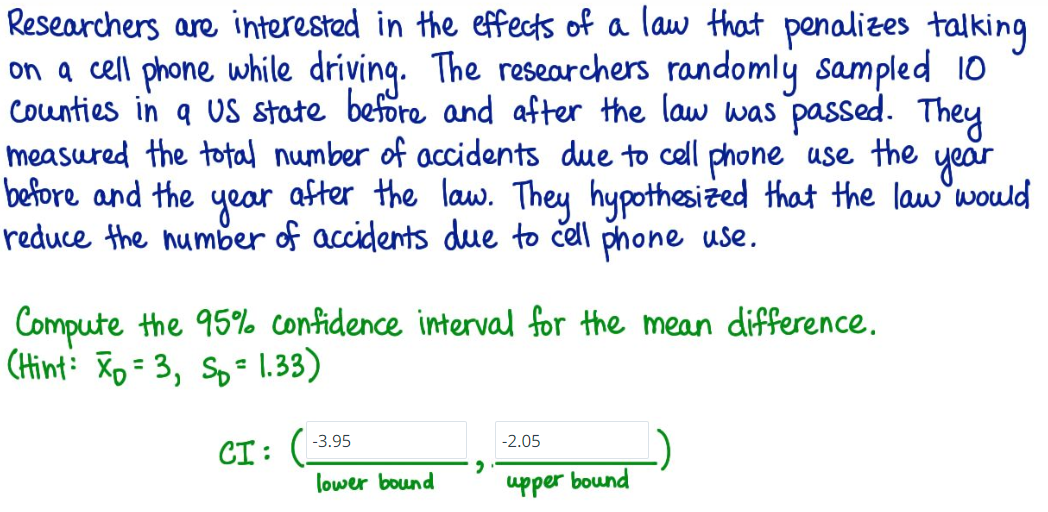 Researchers are interested in the effects of a law that penalizes talking
on a cell phone while driving. The researchers randomly sampled 10
counties in a US state before and after the law was passed. They
measured the total number of accidents due to cell phone use the year
before and the year after the law. They hypothesized that the law would
reduce the number of accidents due to cell phone use.
Compute the 95% confidence interval for the mean difference.
(Hint: x̄_D = 3, S_D = 1.33)
CI: (-3.95, -2.05)
lower bound upper bound